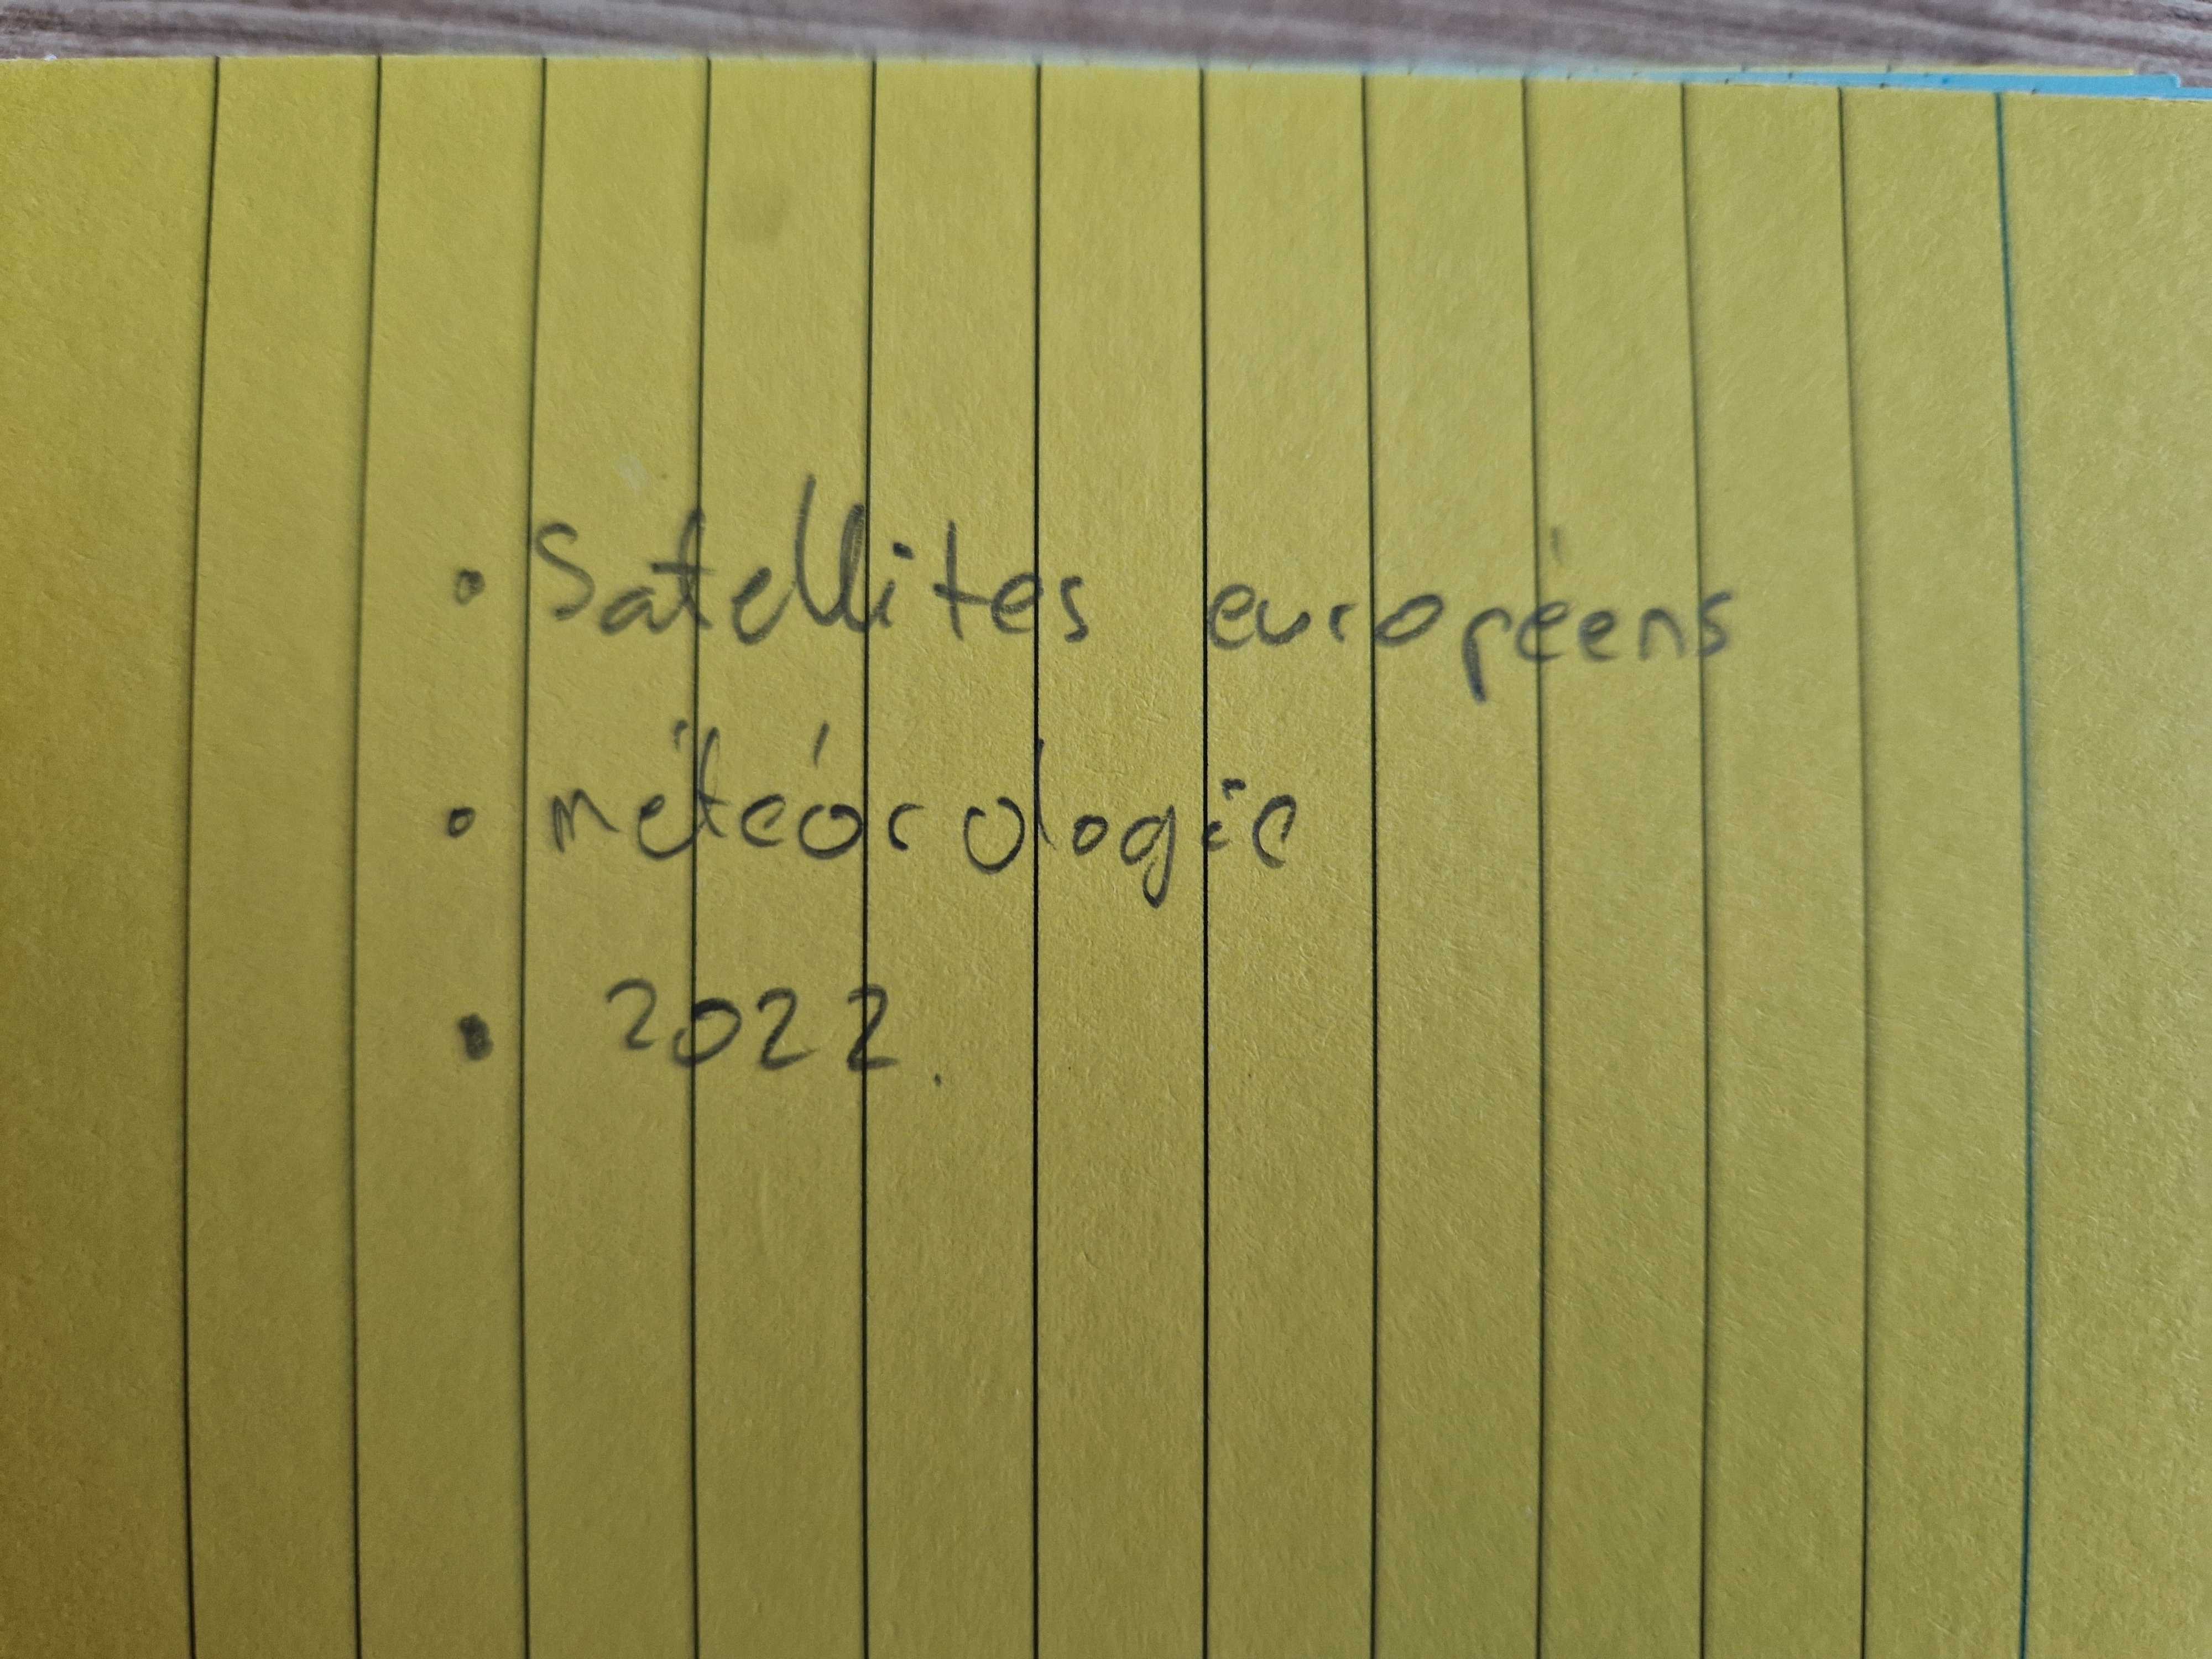 • Satellites européens
• météorologie
• 2022.